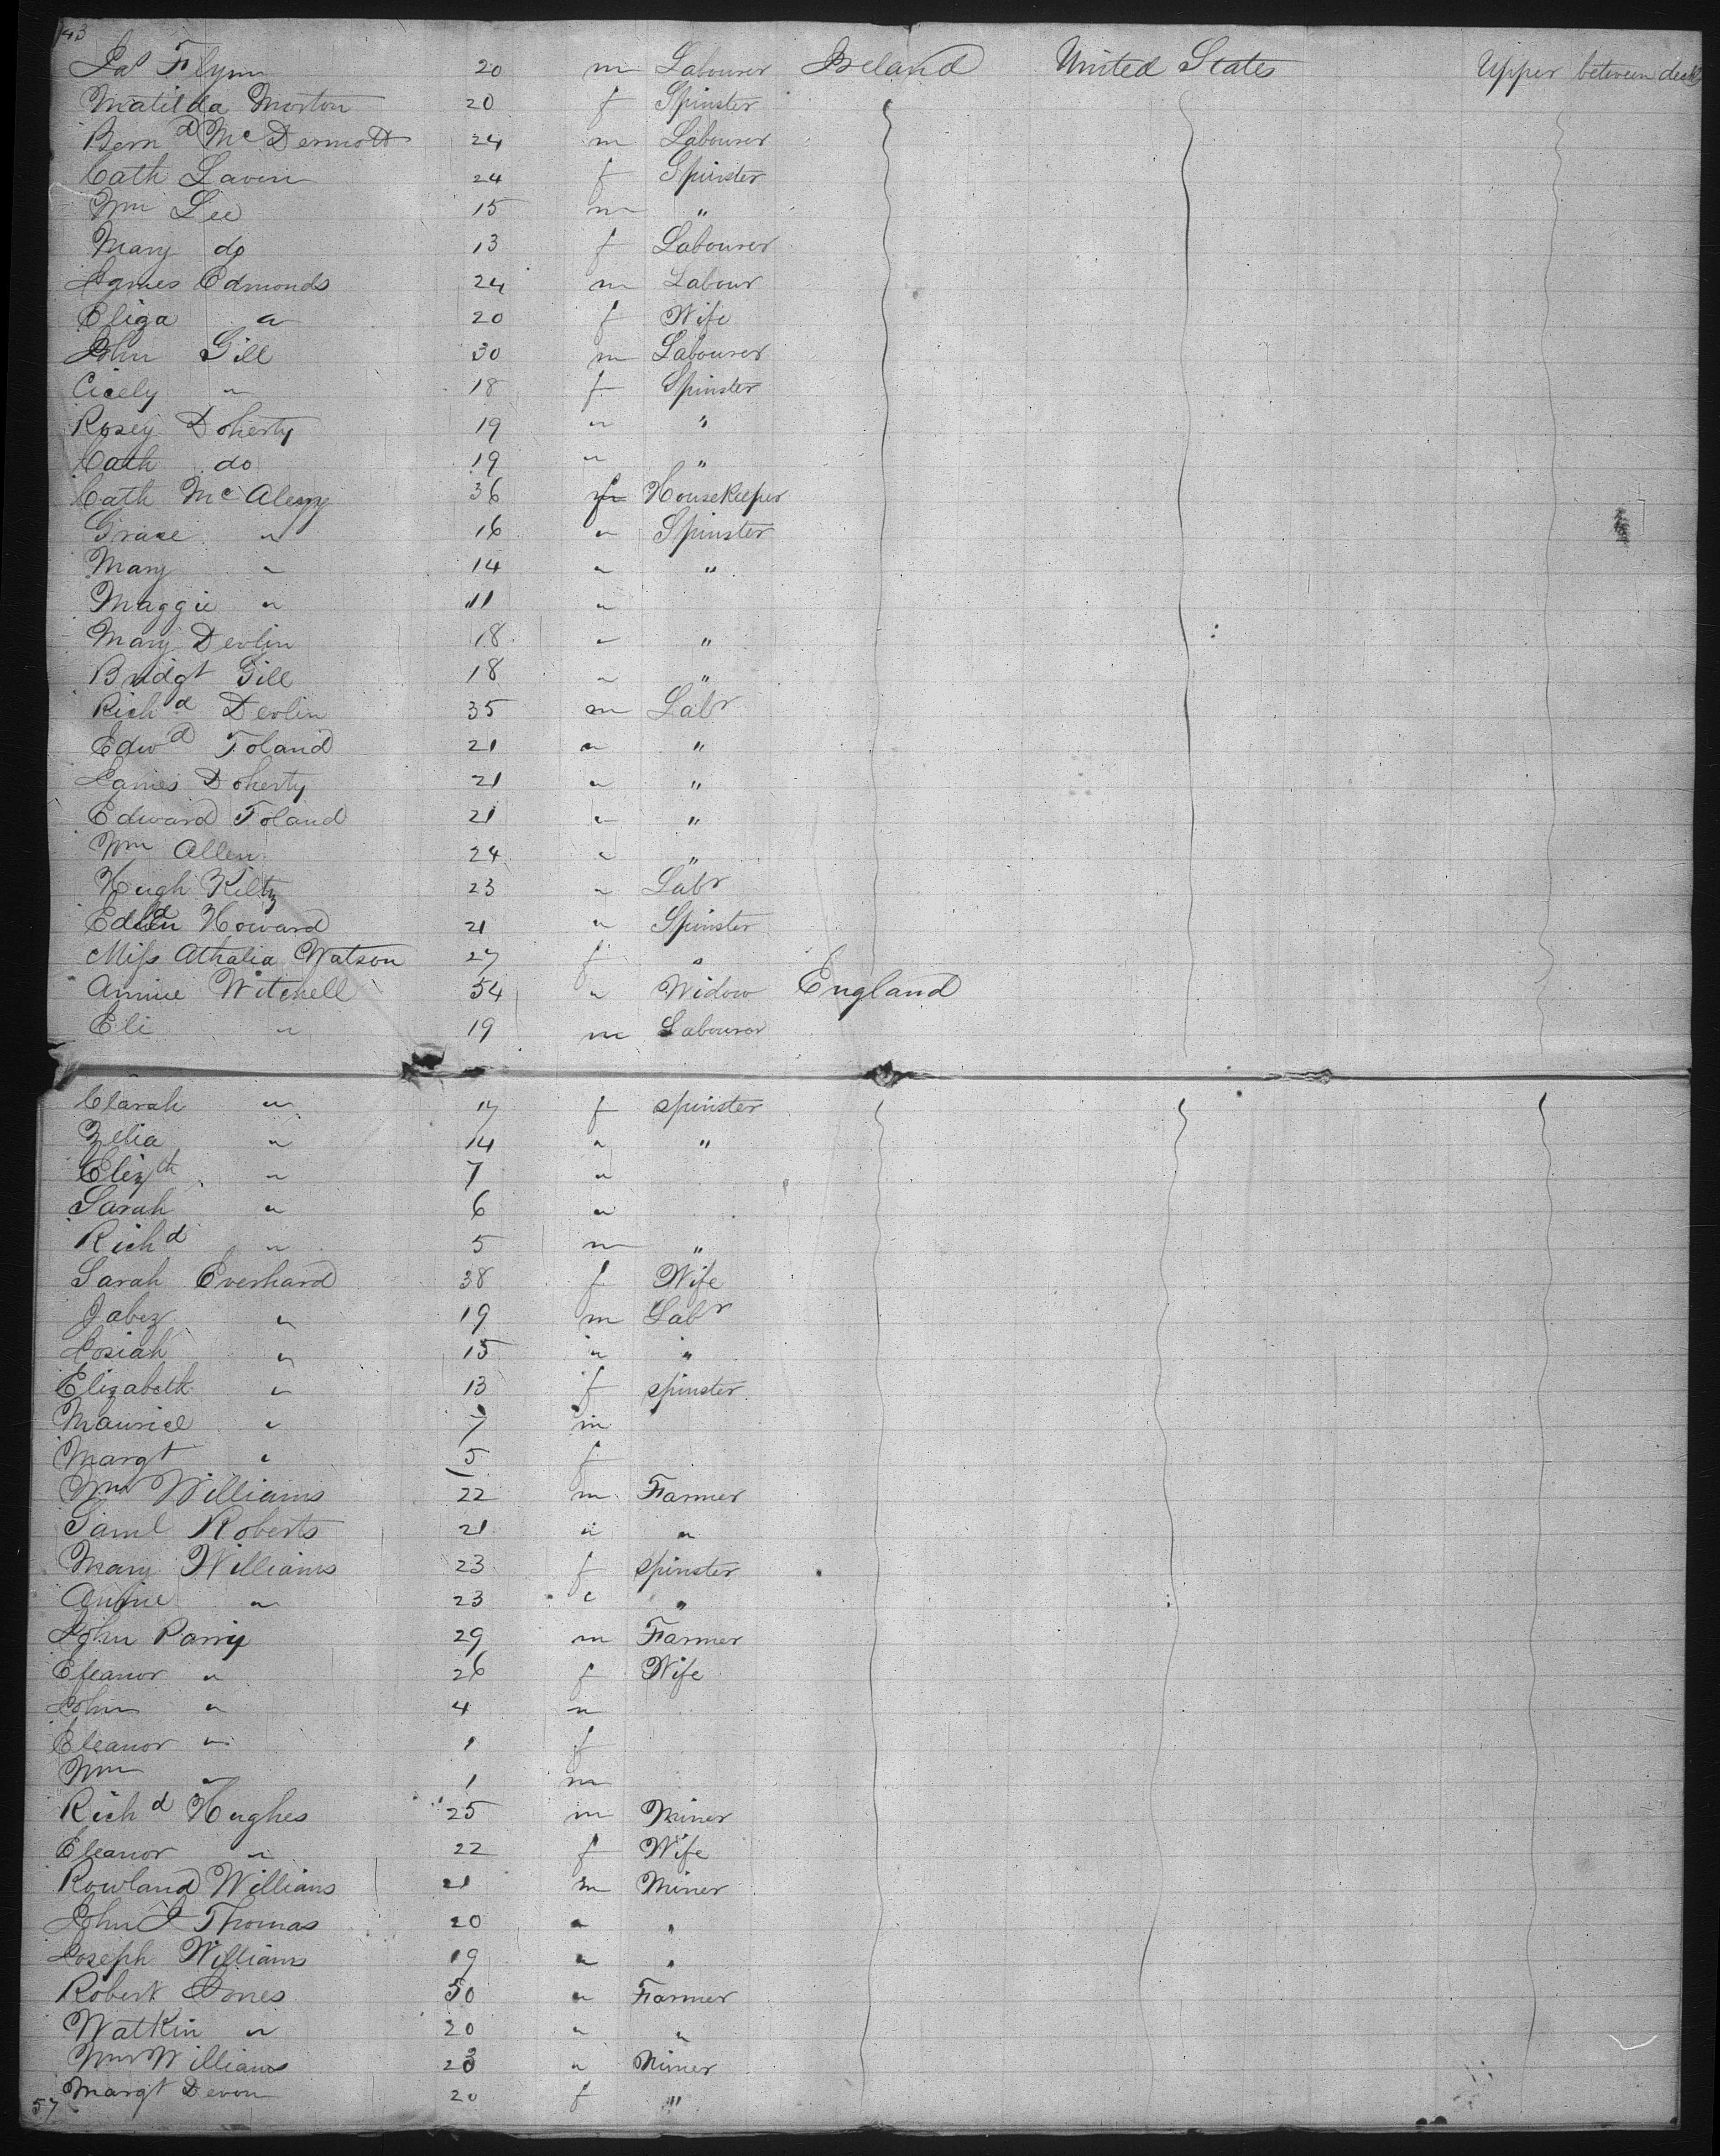 143
Jas Flynn 20 m Labourer Ireland United States Upper between decks
Matilda Morton 20 f Spinster
Bernd McDermott 24 m Labourer
Cath Lavin 24 f Spinster
Wm Lee 15 m "
Mary do 13 f Labourer
James Edmonds 24 m Labour
Eliza " 20 f Wife
John Gill 30 m Labourer
Cicely " 18 f Spinster
Rosey Doherty 19 " "
Cath do 19 " "
Cath 36 f Housekeeper
Grace " 16 " Spinster
Mary " 14 " "
Maggie " 11 "
Mary Devlin 18 " "
Bridgt Gill 18 " "
Richd Devlin 35 m Labr
Edwd Toland 21 " "
James Doherty 21 " "
Edward Toland 21 " "
Wm Allen 24 " "
Hugh Kilty 23 " Labr
Howard 21 " Spinster
Miss Athalia Watson 27 f "
Annie Witchell 54 " Widow England
Eli " 19 m Labourer
Clarah " 17 f spinster
Zelia " 14 " "
Elizth " 7 "
Sarah " 6 "
Richd " 5 m "
Sarah Evershard 38 f Wife
Jabez " 19 m Labr
Josiah " 15 " "
Elizabeth " 13 f spinster
Maurice " 7 m
Margt " 5 f
Wm Williams 22 m Farmer
Saml Roberts 21 " "
Mary Williams 23 f spinster
Annie " 23 " "
John Parry 29 m Farmer
Eleanor " 26 f Wife
John " 4 m
Eleanor " 1 f
Wm " 1 m
Richd Hughes 25 m Miner
Eleanor " 22 f Wife
Rowland Williams 21 m Miner
John J Thomas 20 " "
Joseph Williams 19 " "
Robert Jones 50 " Farmer
Watkin " 20 " "
Wm Williams 23 " Miner
Margt Devon 20 f "
57